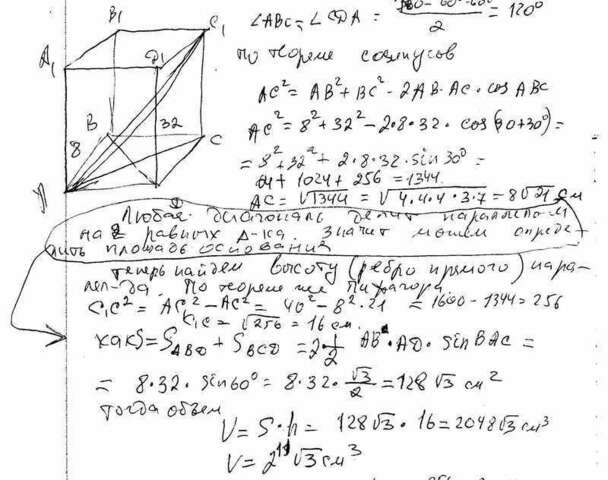 B₁
C₁
A₁
D₁
B
32
C
8
∠ABC = ∠CDA = (360-60-60)/2 = 120°
по теореме косинусов
AC² = AB² + BC² - 2AB·AC·cos ABC
AC² = 8² + 32² - 2·8·32·cos(90+30°) =
= 8² + 32² + 2·8·32·sin30° =
64 + 1024 + 256 = 1344
AC = √1344 = √4·4·4·3·7 = 8√21 см
Любая диагональ делит параллелогм
на 2 равных Δ-ка. Значит можем опреде-
лить площадь основания
Теперь найдем высоту (ребро прямого) пара-
леп-да. По теореме же Пифагора
C₁C² = AC² - AC² = 40² - 8²·21 = 1600 - 1344 = 256
C₁C = √256 = 16 см.
как S = S ABD + S BCD = 2·1/2 AB·AD·sin BAC =
= 8·32·sin60° = 8·32·√3/2 = 128√3 см²
тогда объем
V = S·h = 128√3·16 = 2048√3 см³
V = 2¹¹√3 см³